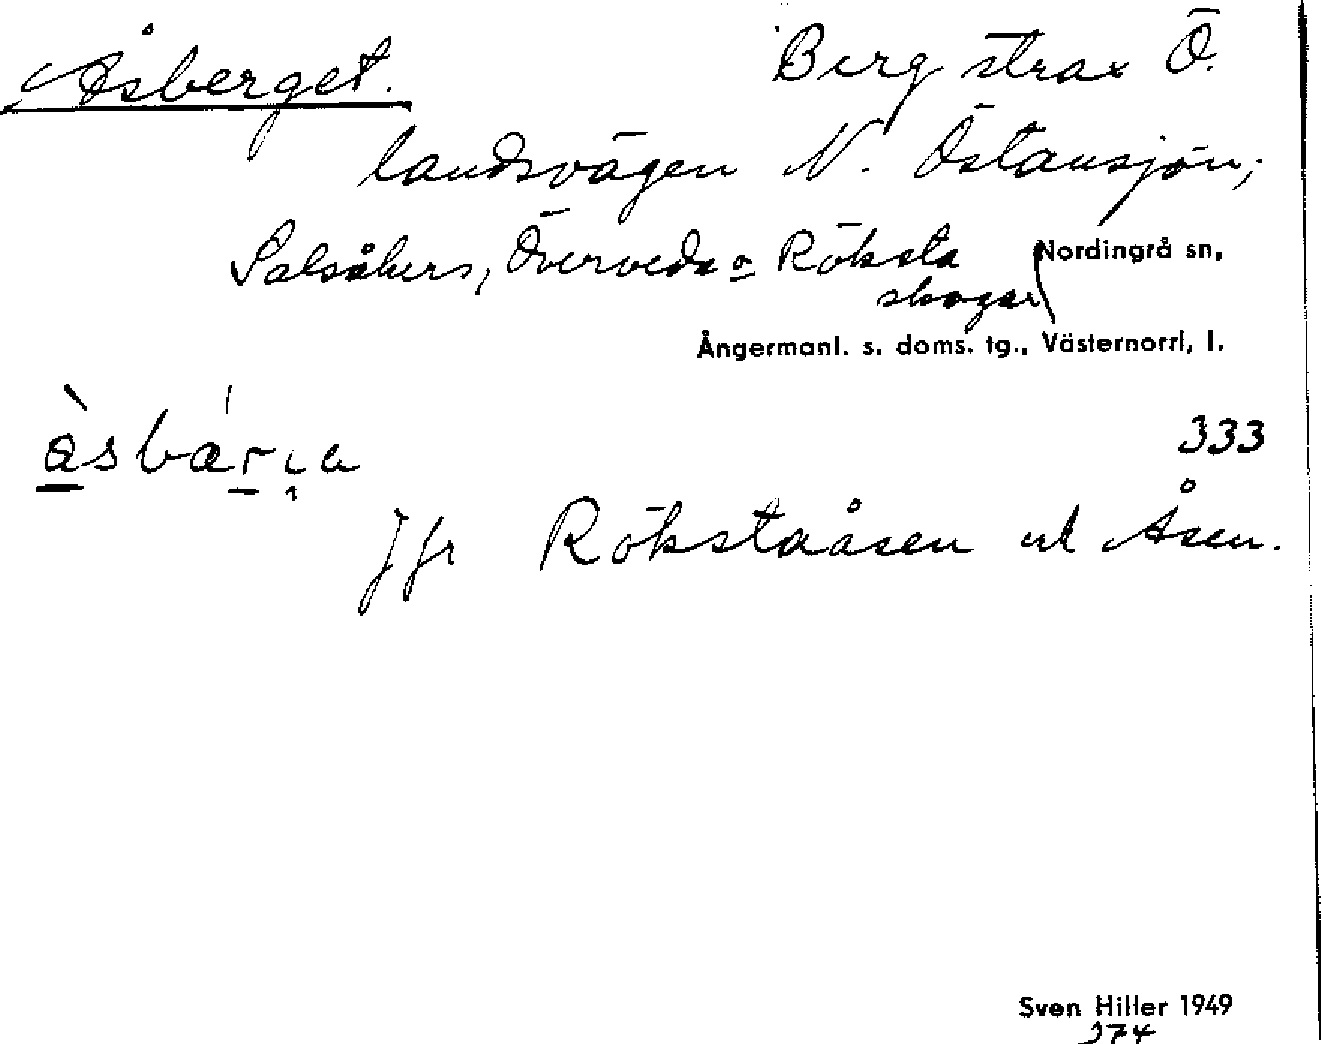 Åsberget. Berg strax Ö.
landsvägen N. Östansjön;
Salsåkers, Överveda o Röksta Nordingrå sn,
skogar
Ångermanl. s. doms. tg., Västernorrl, l.
333
Jfr Rökstaåsen ul Åsen.
Sven Hiller 1949